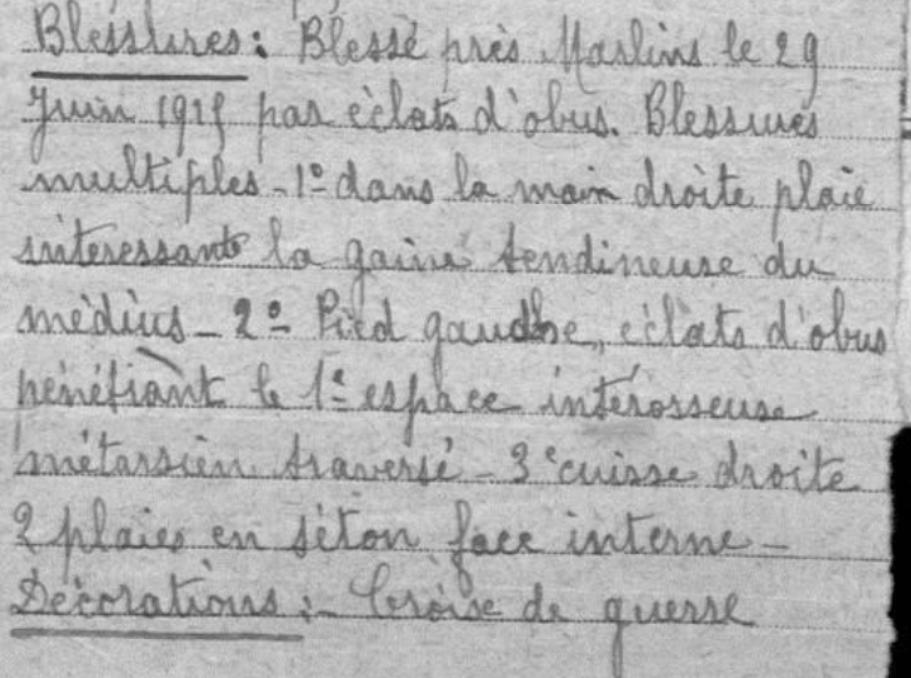 Blessures: Blessé près Marlins le 29
Juin 1918 par éclats d'obus. Blessures
multiples - 1° dans la main droite plaie
intéressant la gaine tendineuse du
médius - 2° Pied gauche, éclats d'obus
pénétrant le 1e espace intérosseuse
métarsien traversé - 3° cuisse droite
2 plaies en séton face interne -
Décorations: - Croise de guerre